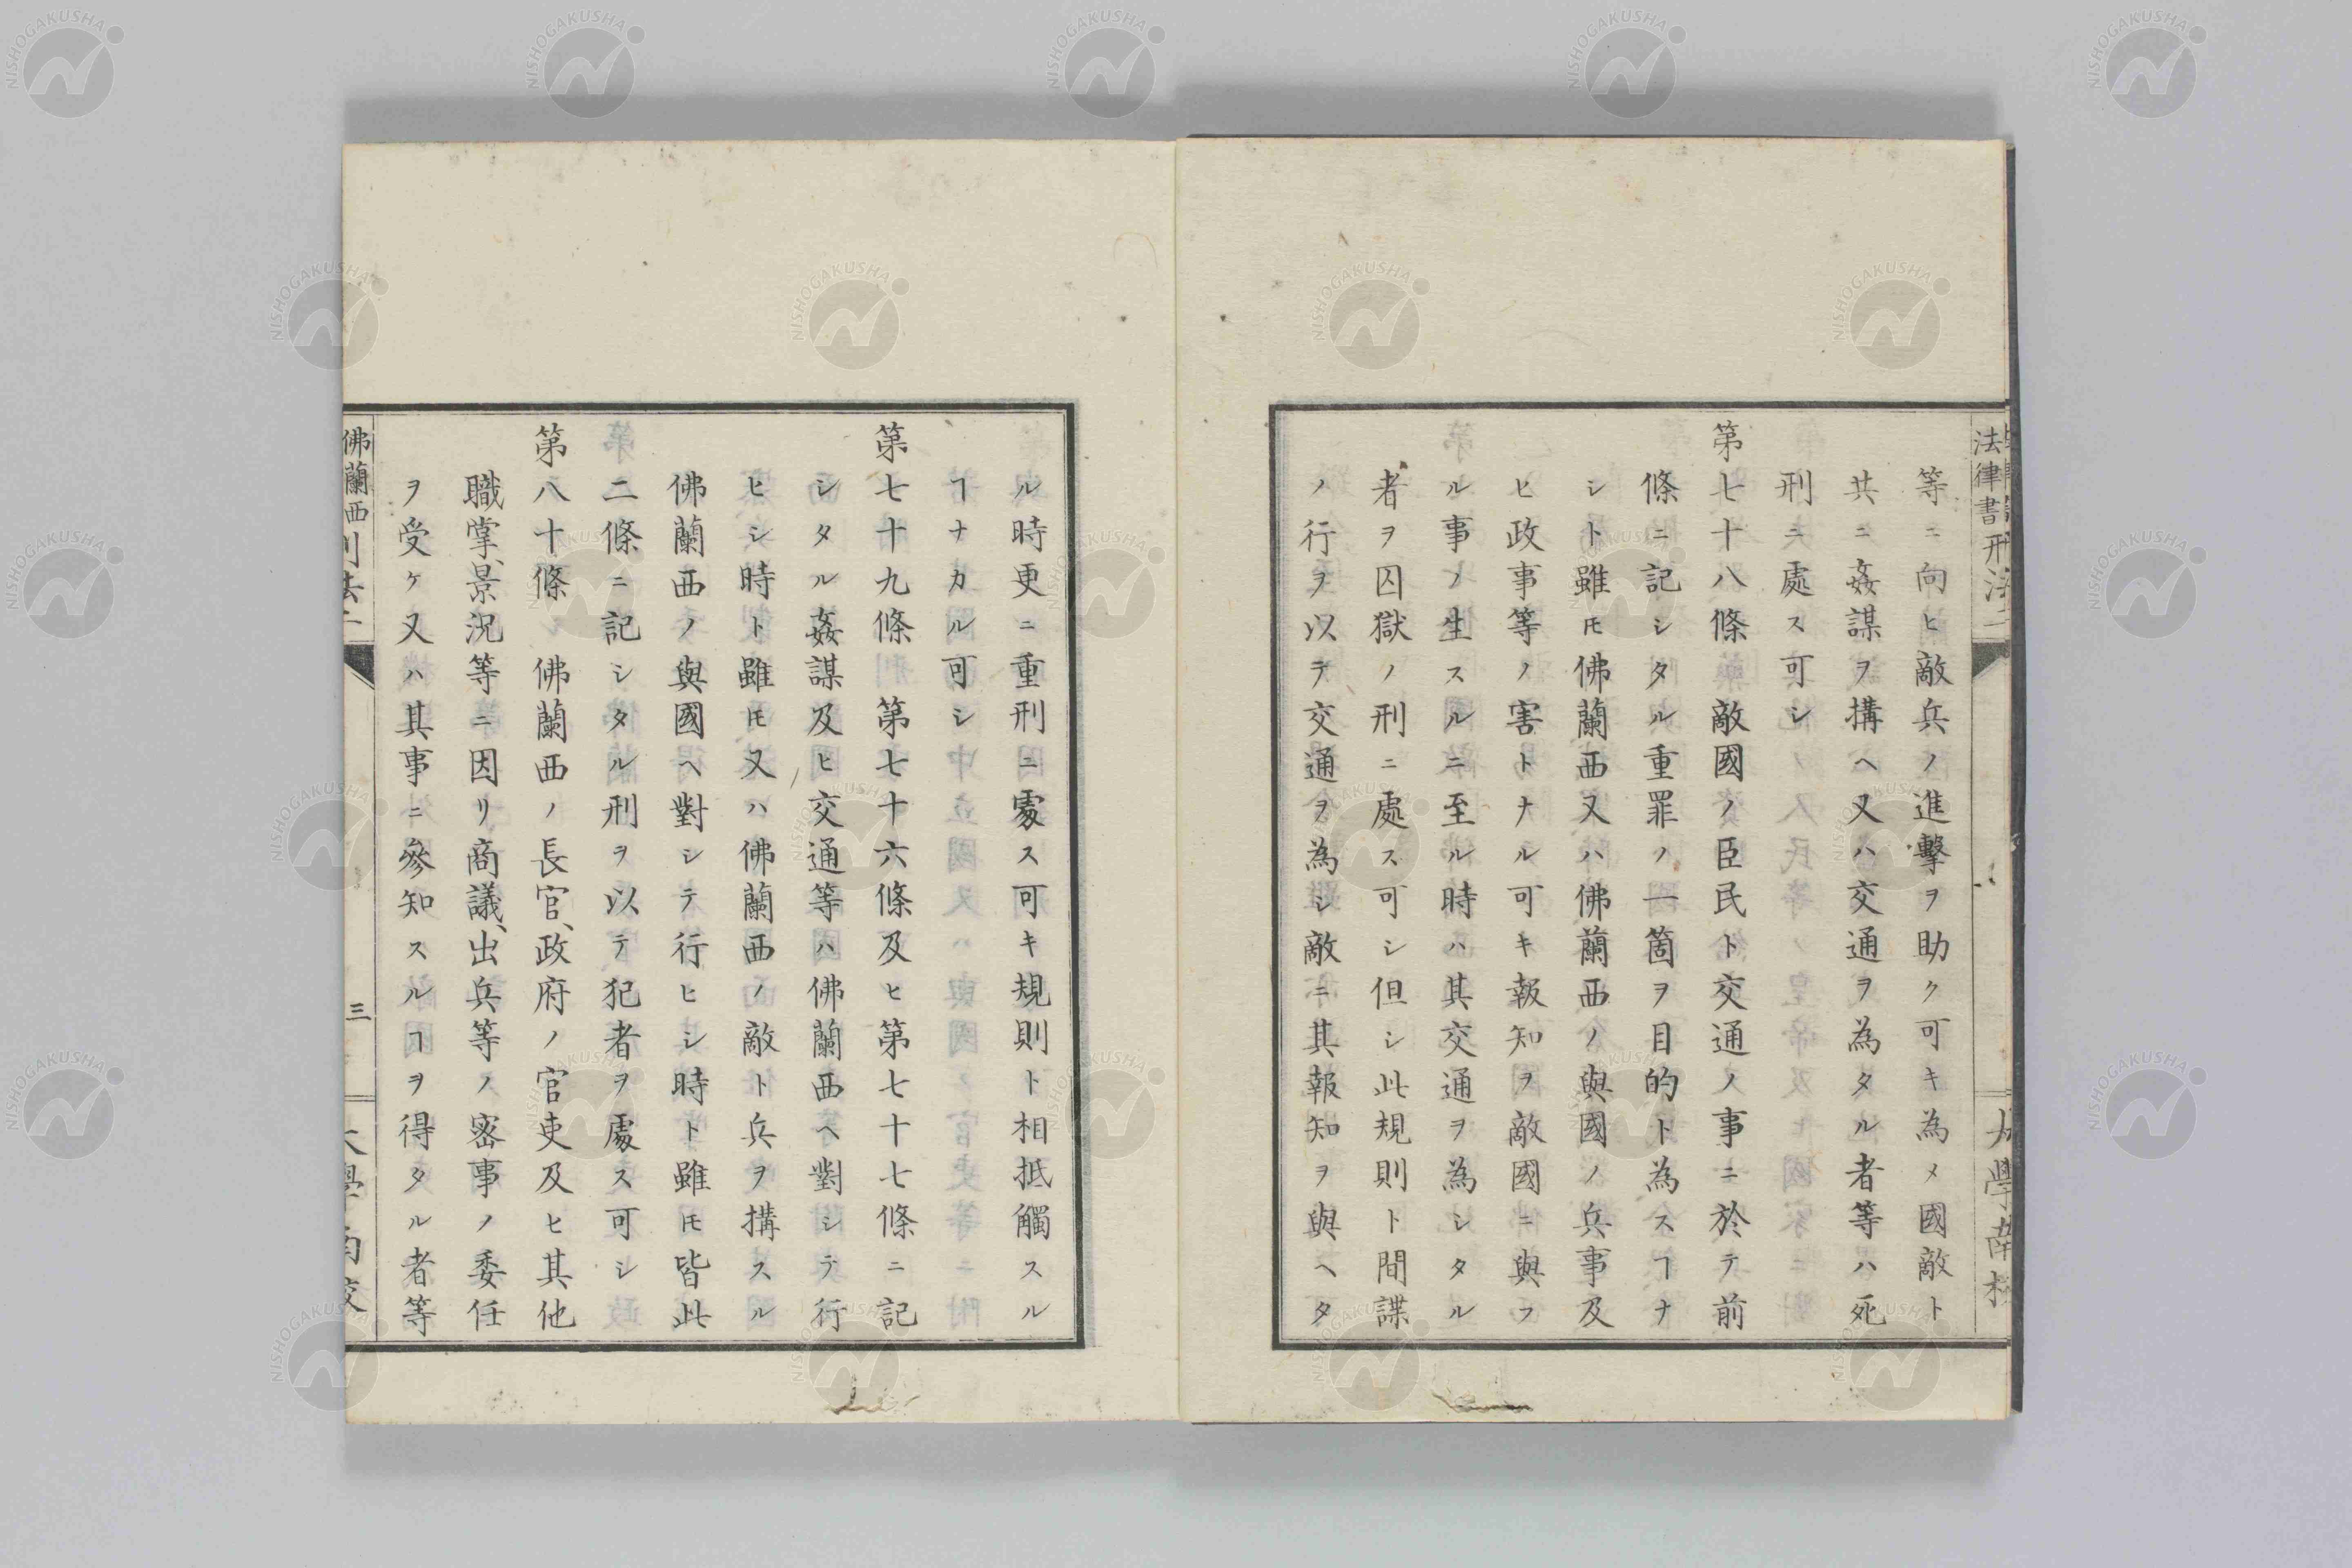 等ニ向ヒ敵兵ノ進擊ヲ助ク可キ為メ國敵ト
共ニ姦謀ヲ搆ヘ又ハ交通ヲ為タル者等ハ死
刑ニ處ス可シ
第七十八條 敵國ノ臣民ト交通ノ事ニ於テ前
條ニ記シタル重罪ノ一箇ヲ目的ト為スヿナ
シト雖𪜈佛蘭西又ハ佛蘭西ノ與國ノ兵事及
ヒ政事等ノ害トナル可キ報知ヲ敵國ニ與フ
ル事ノ生スルニ至ル時ハ其交通ヲ為シタル
者ヲ囚獄ノ刑ニ處ス可シ但シ此規則ト間諜
ノ行ヲ以テ交通ヲ為シ敵ニ其報知ヲ與ヘタ
ル時更ニ重刑ニ處ス可キ規則ト相抵觸スル
ヿナカル可シ
第七十九條 第七十六條及ヒ第七十七條ニ記
シタル姦謀及ヒ交通等ハ佛蘭西ヘ對シテ行
ヒシ時ト雖𪜈又ハ佛蘭西ノ敵ト兵ヲ搆スル
佛蘭西ノ與國ヘ對シテ行ヒシ時ト雖𪜈皆此
二條ニ記シタル刑ヲ以テ犯者ヲ處ス可シ
第八十條 佛蘭西ノ長官、政府ノ官吏及ヒ其他
職掌、景況等ニ因リ商議、出兵等ノ密事ノ委任
ヲ受ケ又ハ其事ニ參知スルヿヲ得タル者等
佛蘭西刑法二
三
大學南校
NISHOGAKUSHA